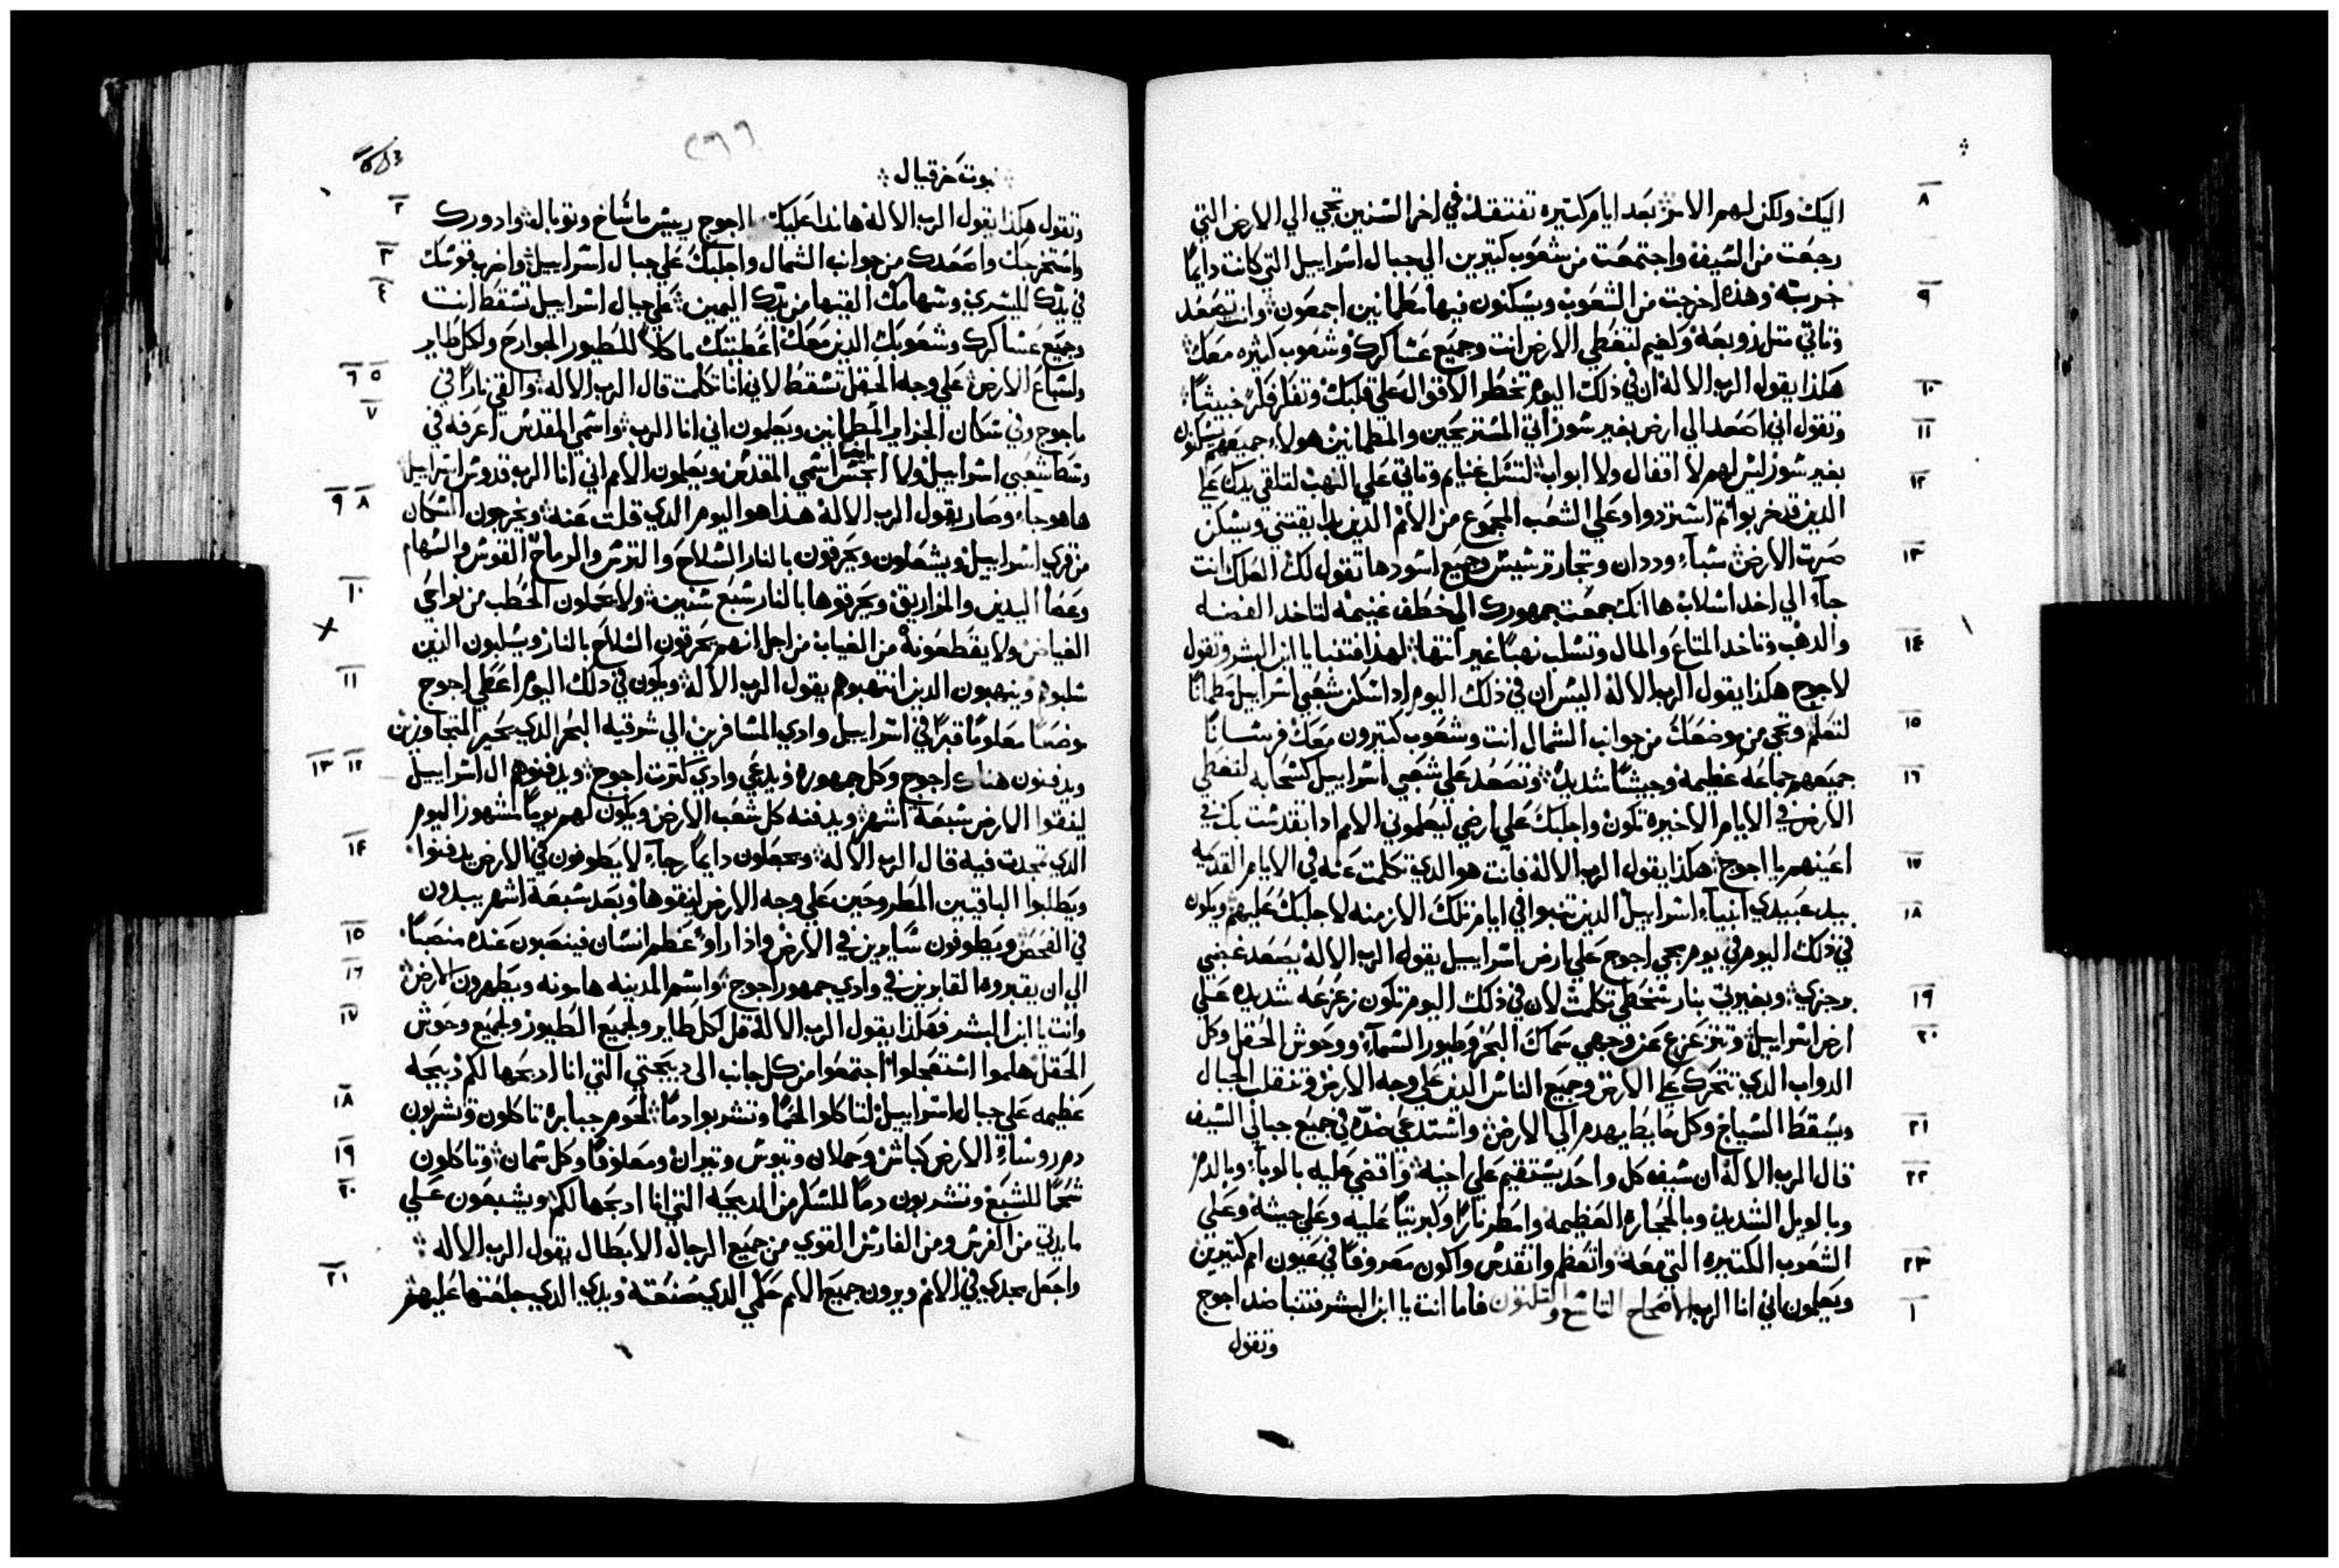 ٨ اليك ولكن لهم الامن بعد ايام كتيره تفتقد في اخر السنين تجي الي الارض التي
رجعت من السيف واجتمعت من شعوب كتيرين الي جبال اسراييل التي كانت دايما
٩ خربته وهذه اخرجت من الشعوب ويسكنون فيها مطمانين اجمعون وانت تصعد
وتاتي متل زوبعه ولغيم لتغطي الارض انت وجميع عساكرك وشعوب كتيره معك
١٠ هكذا يقول الرب الاله ان في ذلك اليوم تخطر الاقوال علي قلبك وتفكر فكر خبيتا
١١ وتقول اني اصعد الي ارض بغير سور اتي المستريحين والمطمانين هولاء جميعهم يسكنون
١٢ بغير سور ليس لهم لا اقفال ولا ابواب لتسل غنايم وتاتي علي النهب لتلقي يدك علي
الذين قد خربوا تم استردوا وعلي الشعب المجموع من الامم الذين بدا يقتني ويسكن
١٣ صرت الارض شباء وددان وتجار ترسيس وجميع اسودها تقول لك العلك انت
جاء الي اخد اسلاب ها انك جمعت جمهورك الي خطف غنيمه لتاخد الفضه
١٤ والدهب وتاخد المتاع والمال وتسلب نهبا غير انتها لهذا فتنبا يا ابن البشر وتقول
لاجوج هكذا يقول الرب الاله اليس ان في ذلك اليوم ادا سكن شعبي اسراييل مطمانا
١٥ لتعلم وتجي من موضعك من جوانب الشمال انت وشعوب كتيرون معك فرسانا
١٦ جميعهم جماعه عظيمه وجيشا شديد وتصعد علي شعبي اسراييل كسحابه لتغطي
الارض في الايام الاخيره تكون واجلبك علي ارضي ليعلموني الامم ادا تقدست بك في
١٧ اعينهم يا اجوج هكذا يقول الرب الاله فانت هو الدي تكلمت عنه في الايام القديمه
١٨ بيد عبيدي انبياء اسراييل الدين تنبوا في ايام تلك الازمنه لاجلبك عليهم ويكون
في ذلك اليوم في يوم مجي اجوج علي ارض اسراييل يقول الرب الاله يصعد غضبي
١٩ برجزي وبغيرتي بنار سخطي تكلمت لان في ذلك اليوم تكون زعزعه شديده علي
٢٠ ارض اسراييل وتتزعزع عن وجهي سماك البحر وطيور السماء ووحوش الحقل وكل
الدواب الدي تتحرك علي الارض وجميع الناس الدين علي وجه الارض وتنقلب الجبال
٢١ ويسقط السياج وكل حايط يهدم الي الارض واستدعي ضده في جميع جبالي السيف
٢٢ قال الرب الاله ان سيف كل واحد يستقيم علي اخيه واقضي عليه بالوباء وبالدم
وبالوبل الشديد وبالحجاره العظيمه وامطر نارا وكبريتا عليه وعلي جيشه وعلي
٢٣ الشعوب الكتيره التي معه واتعظم واتقدس واكون معروفا في عيون امم كتيرين
١ ويعلمون اني انا الرب الاصحاح التاسع والتلتون فاما انت يا ابن البشر فتنبا ضد اجوج
وتقول
نبوت حزقيال
٢ وتقول هكذا يقول الرب الاله هاندا عليك اجوج رييس ماشاخ وتوبال وادورك
٣ واستخرجك واصعدك من جوانب الشمال واجلبك علي جبال اسراييل واضرب قوسك
٤ في يدك اليسري وسهامك القيها من يدك اليمين علي جبال اسراييل تسقط انت
وجميع عساكرك وشعوبك الدين معك اعطيتك ماكلا للطيور الجوارح ولكل طاير
٥ ٦ ولسباع الارض علي وجه الحقل تسقط لاني انا تكلمت قال الرب الاله والقي نارا في
٧ ماجوج وفي سكان الجزاير المطمانين ويعلمون اني انا الرب واسمي المقدس اعرفه في
وسط شعبي اسراييل ولا انجس ايضا اسمي المقدس ويعلمون الامم اني انا الرب قدوس اسراييل
٨ ٩ ها هو جاء وصار يقول الرب الاله هذا هو اليوم الدي قلت عنه ويخرجون السكان
من قري اسراييل ويشعلون ويحرقون بالنار السلاح والترس والرماح القوس والسهام
١٠ وعصا اليدين والمزاريق ويحرقوها بالنار سبع سنين ولا يحملون الحطب من نواحي
الغياض ولا يقطعونه من الغياب من اجل انهم يحرقون السلاح بالنار ويسلبون الدين
١١ سلبوهم وينهبون الدين انتهبوهم يقول الرب الاله ويكون في ذلك اليوم اعطي اجوج
موضعا معلوما قبرا في اسراييل وادي المسافرين الي شرقيه البحر الدي يحير المتجاوزين
١٢ ١٣ ويدفنون هناك اجوج وكل جمهوره ويدعي وادي كترت اجوج ويدفنوهم ال اسراييل
لينقوا الارض سبعه اشهر ويدفنه كل شعب الارض ويكون لهم يوما مشهورا اليوم
١٤ الدي تمجدت فيه قال الرب الاله ويجعلون دايما رجاء لا يطوفون في الارض يدفنوا
ويطلبوا الباقيين المطروحين علي وجه الارض لينقوها وبعد سبعة اشهر يبدون
١٥ في الفحص ويطوفون سايرين في الارض واذا راو عظم انسان فينصبون عنده منصبا
١٦ الي ان يقبروه القابرين في وادي جمهور اجوج واسم المدينه هامونه ويطهرون الارض
١٧ وانت يا ابن البشر فهكذا يقول الرب الاله قل لكل طاير ولجميع الطيور ولجميع وحوش
الحقل هلموا استعجلوا اجتمعوا من كل جانب الي دبيحتي التي انا ادبحها لكم دبيحه
١٨ عظيمه علي جبال اسراييل لتاكلوا لحما وتشربوا دما لحوم جبابره تاكلون وتشربون
١٩ دم روساء الارض كباش وحملان وتيوس وتيران ومعلوفا وكل سمان وتاكلون
٢٠ شحما للشبع وتشربون دما للسكر من الدبيحه التي انا ادبحها لكم ويشبعون علي
مايدتي من الفرس ومن الفارس القوي من جميع الرجال الابطال يقول الرب الاله
٢١ واجعل مجدي في الامم ويرون جميع الامم حكمي الدي صنعته ويدي الدي جعلتها عليهم